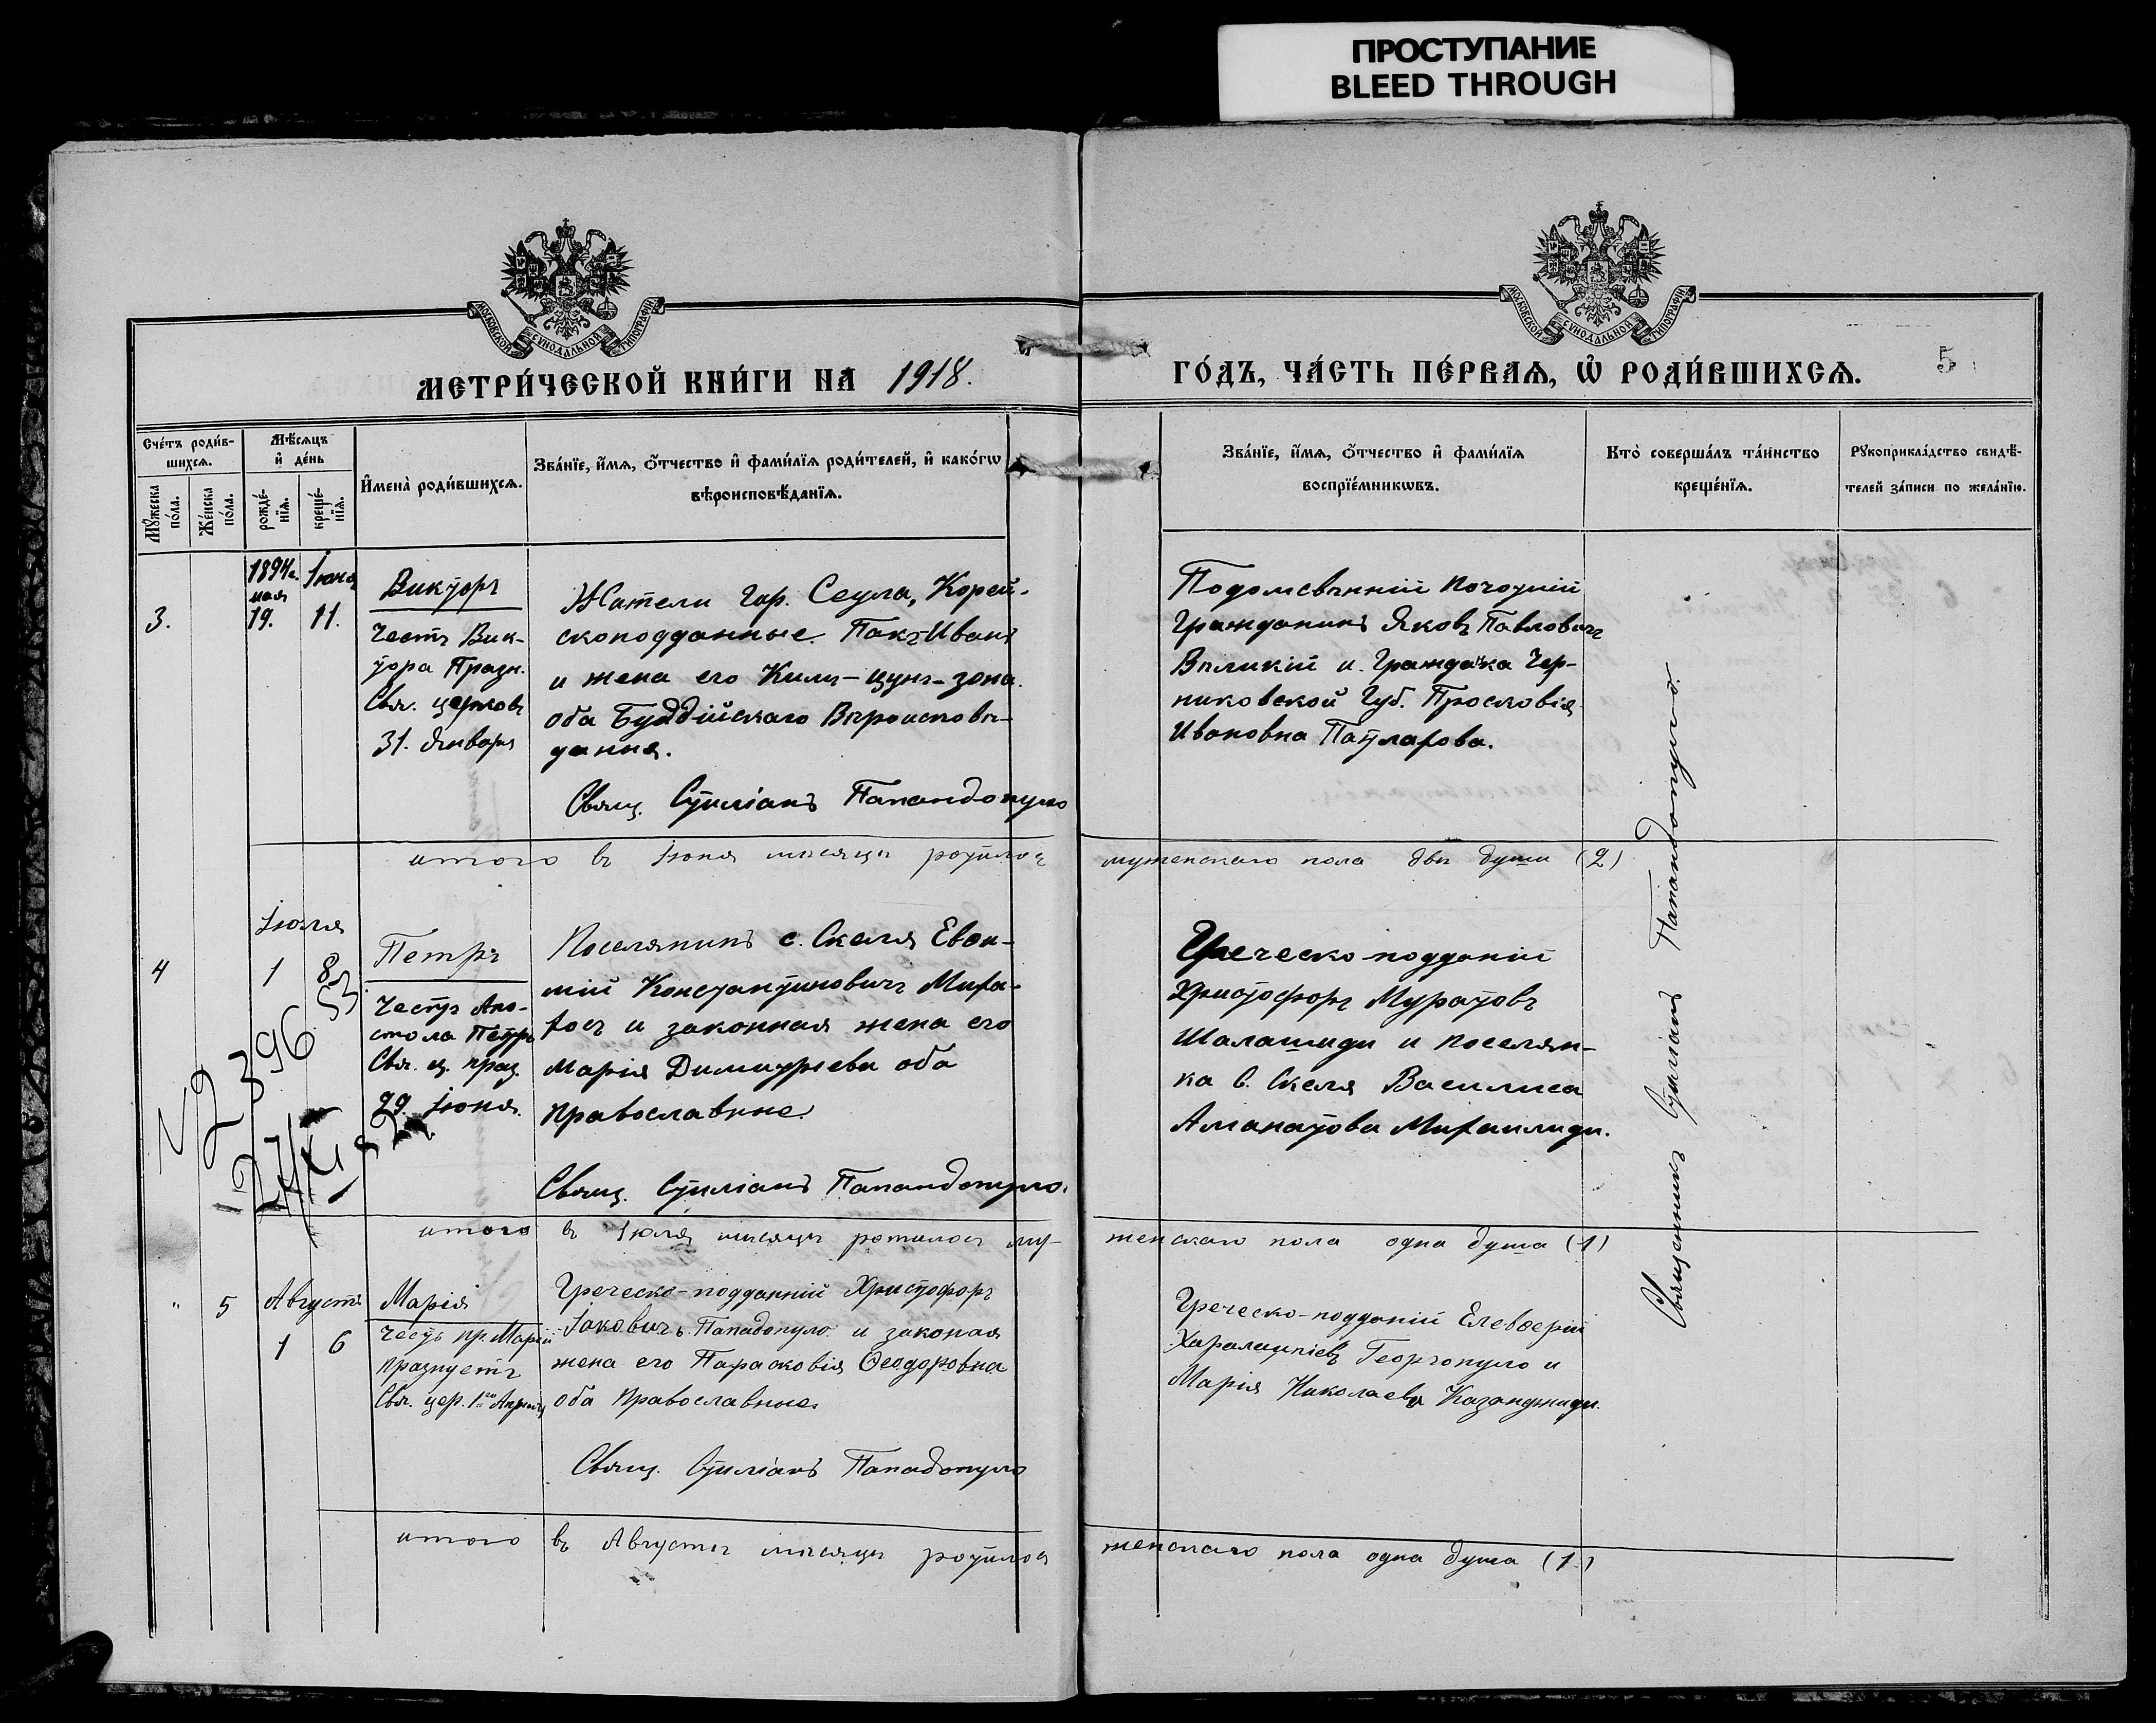 ПРОСТУПАНИЕ
BLEED THROUGH
МОСКОВСКОЙ СѴНОДАЛЬНОЙ ТИПОГРАФІИ
МОСКОВСКОЙ СѴНОДАЛЬНОЙ ТИПОГРАФІИ
МЕТРИ́ЧЕСКОЙ КНИ́ГИ НА 1918.
ГО́ДЪ, ЧА́СТЬ ПЕ́РВАѦ, Ѡ҆ РОДИ́ВШИХСѦ.
5
Сче́тъ роди́в-
шихсѧ.
Мꙋ́жеска
по́ла.
Же́нска
по́ла.
Мѣ́сѧцъ
и҆ де́нь
рожде́-
нїѧ.
креще́-
нїѧ.
И҆мена̀ роди́вшихсѧ.
Зва́нїе, и҆́мѧ, ѻ҆́тчество и҆ фами́лїѧ роди́телей, и҆ како́гѡ
вѣроисповѣ́данїѧ.
Зва́нїе, и҆́мѧ, ѻ҆́тчество и҆ фами́лїѧ
воспрїе́мникѡвъ.
Кто̀ соверша́лъ та́инство
креще́нїѧ.
Рꙋкоприкла́дство свидѣ́-
телей за́писи по жела́нїю.
3.
1894г.
мая
19.
Іюня
11.
Викторъ
Честь Вик-
тора Празн.
Свя. церковь
31. Января
Жители Гор. Сеула, Корей-
скоподданные Пакъ-Иванъ
и жена его Ким-цун-зона
оба Буддійскаго Вѣроисповѣ-
дания.
Свящ. Стиліанъ Папандопуло
Почотній
Гражданинъ Яковъ Павловичъ
Вѣликій и Гражданка Чер-
никовской Губ. Просковія
Ивановна
итого въ Іюня мѣсяцѣ родилось
мужескаго пола двѣ души (2)
4
Іюля
1 8
Петръ
Честь Апо-
стола Петръ
Свя. ц. праз.
29. Іюня.
Поселянинъ с. Скеля Евѳи-
мій Константиновичъ Миха-
и законная жена его
Марія Димитріева оба
православные.
Свящ. Стиліанъ Папандопуло.
Греческо-подданій
Христофоръ Муратовъ
Шалашиди и поселян-
ка с. Скеля Василиса
Аманатова Михаилиди.
N 2396
итого в Іюля мѣсяцѣ родилось му-
жескаго пола одна душа (1)
" 5
Августъ
1 6
Марія
Честь пр. Маріи
празнуетъ
Свя. цер. 1го Апрѣля
Греческо-подданній Христофоръ
Іаковичъ Пападопуло и законая
жена его Парасковія Ѳеодоровна
оба Православные.
Свящ. Стиліанъ Пападопуло
Греческо-подданій Елевѳерій
Харалампіевъ Георгопуло и
Марія Николаева Казанджиди.
итого въ Августѣ мѣсяцѣ родилося
женскаго пола одна душа (1)
Священникъ Стиліанъ Папандопуло.